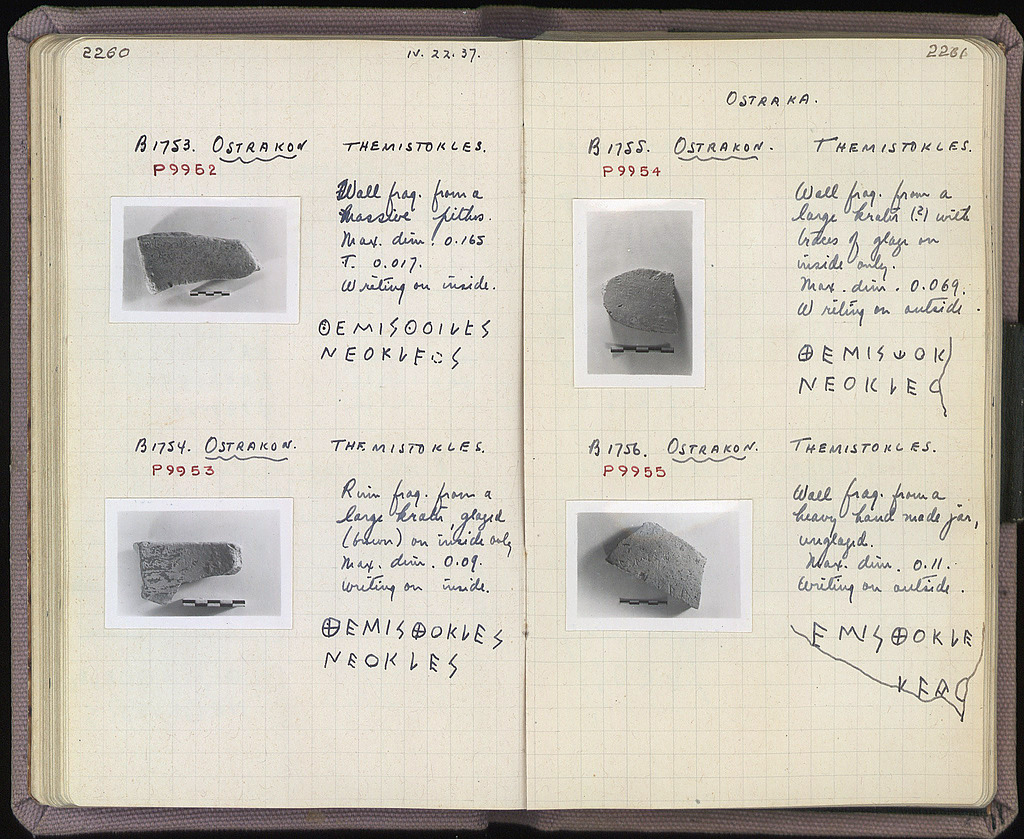 2260
IV. 22. 37.
B1753. OSTRAKON THEMISTOKLES.
P9952
Wall frag. from a
massive pithos.
Max. dim. 0.165
T. 0.017.
Writing on inside.
ΘEMISΘOILES
NEOKLEOS
B1754. OSTRAKON. THEMISTOKLES.
P9953
Rim frag. from a
large krater, glazed
(brown) on inside only
Max. dim. 0.09.
Writing on inside.
⊕EMIS⊕OKLES
NEOKLES
OSTRAKA.
B1755. OSTRAKON. THEMISTOKLES.
P9954
Wall frag. from a
large krater (?) with
traces of glaze on
inside only.
Max. dim. 0.069.
Writing on outside
⊕EMIS OK
NEOKLE
B1756. OSTRAKON. THEMISTOKLES.
P9955
Wall frag. from a
heavy hand made jar,
unglazed.
Max. dim. 0.11.
Writing on outside.
EMIS⊕OKLE